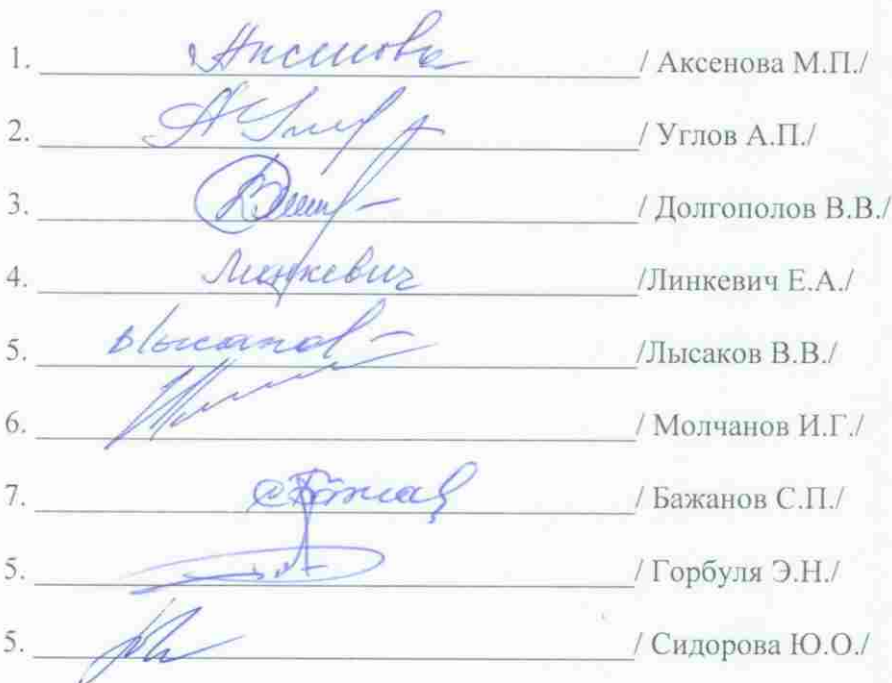 1. Аксенова / Аксенова М.П./
2. / Углов А.П./
3. / Долгополов В.В./
4. Линкевич /Линкевич Е.А./
5. /Лысаков В.В./
6. / Молчанов И.Г./
7. / Бажанов С.П./
5. / Горбуля Э.Н./
5. / Сидорова Ю.О./